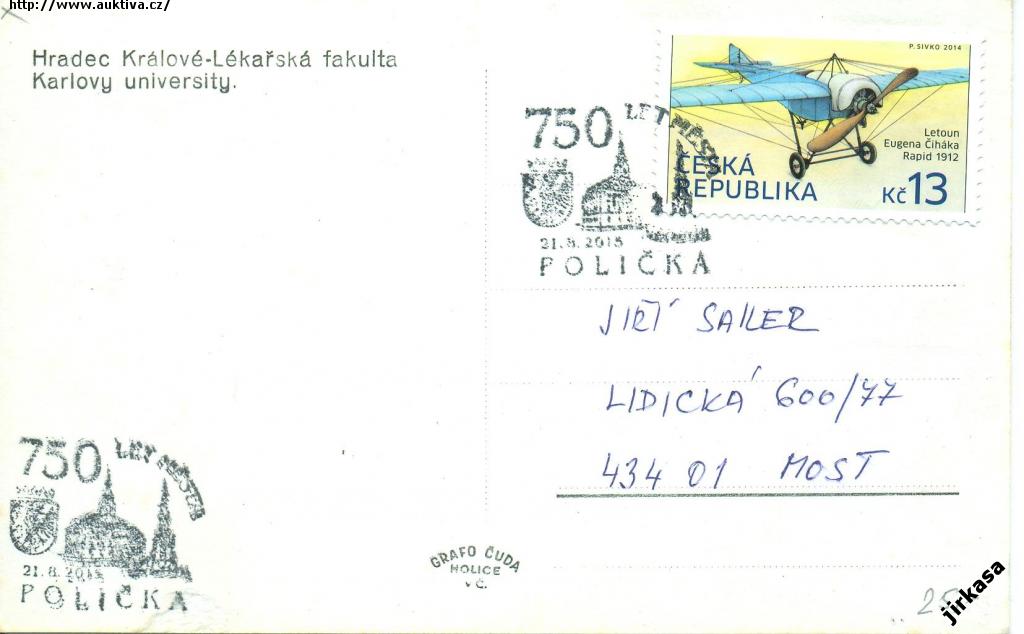 http://www.auktiva.cz/
Hradec Králové-Lékařská fakulta
Karlovy university.
P. SIVKO 2014
Letoun
Eugena Čiháka
Rapid 1912
ČESKÁ
REPUBLIKA
Kč 13
750 LET MĚSTA
21.8.2015
POLIČKA
JIŘÍ SAILER
LIDICKÁ 600/77
434 01 MOST
750 LET MĚSTA
21.8.2015
POLIČKA
GRAFO ČUDA
HOLICE
v Č.
25
jirkasa